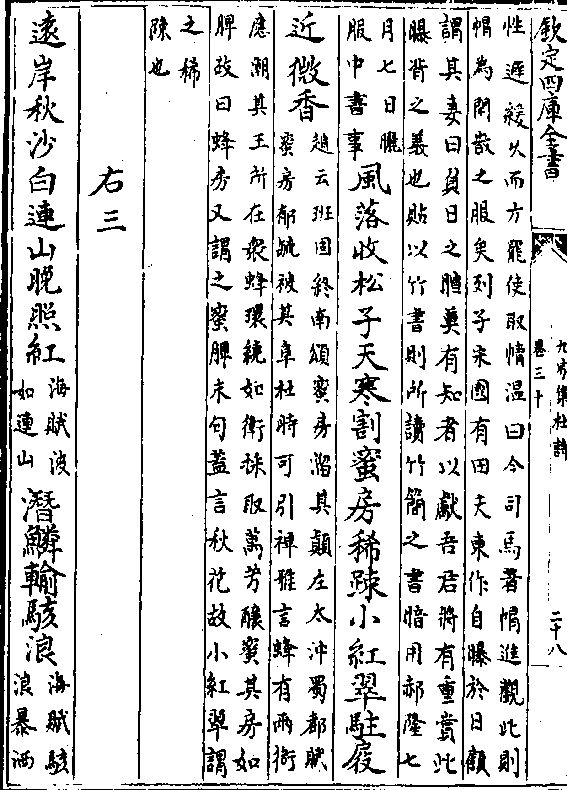 欽定四庫全書
九家集杜詩
卷三十
二十八
性遲緩久而方罷使取幘温曰今司馬著帽進觀此則
帽為閒散之服矣列子宋國有田夫東作自曝於日顧
謂其妻曰負日之暄莫有知者以獻吾君將有重賞此
曝背之義也貼以竹書則所讀竹簡之書暗用郝隆七
月七日曬
服中書事
風落收松子天寒割蜜房稀疎小紅翠駐屐
近微香
趙云班固終南頌蜜房溜其巔左太冲蜀都賦
蜜房郁毓被其阜杜時可引裨雅言蜂有兩衙
應潮其王所在衆蜂環繞如衛採取萬芳釀蜜其房如
脾故曰蜂房又謂之蜜脾末句蓋言秋花故小紅翠謂
之稀
疎也
右三
遠岸秋沙白連山晚照紅
海賦波
如連山
潛鱗輸駭浪
海賦駭
浪暴洒